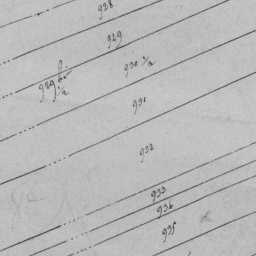 928
929
930 1/2
929 1/2
931
932
933
936
935